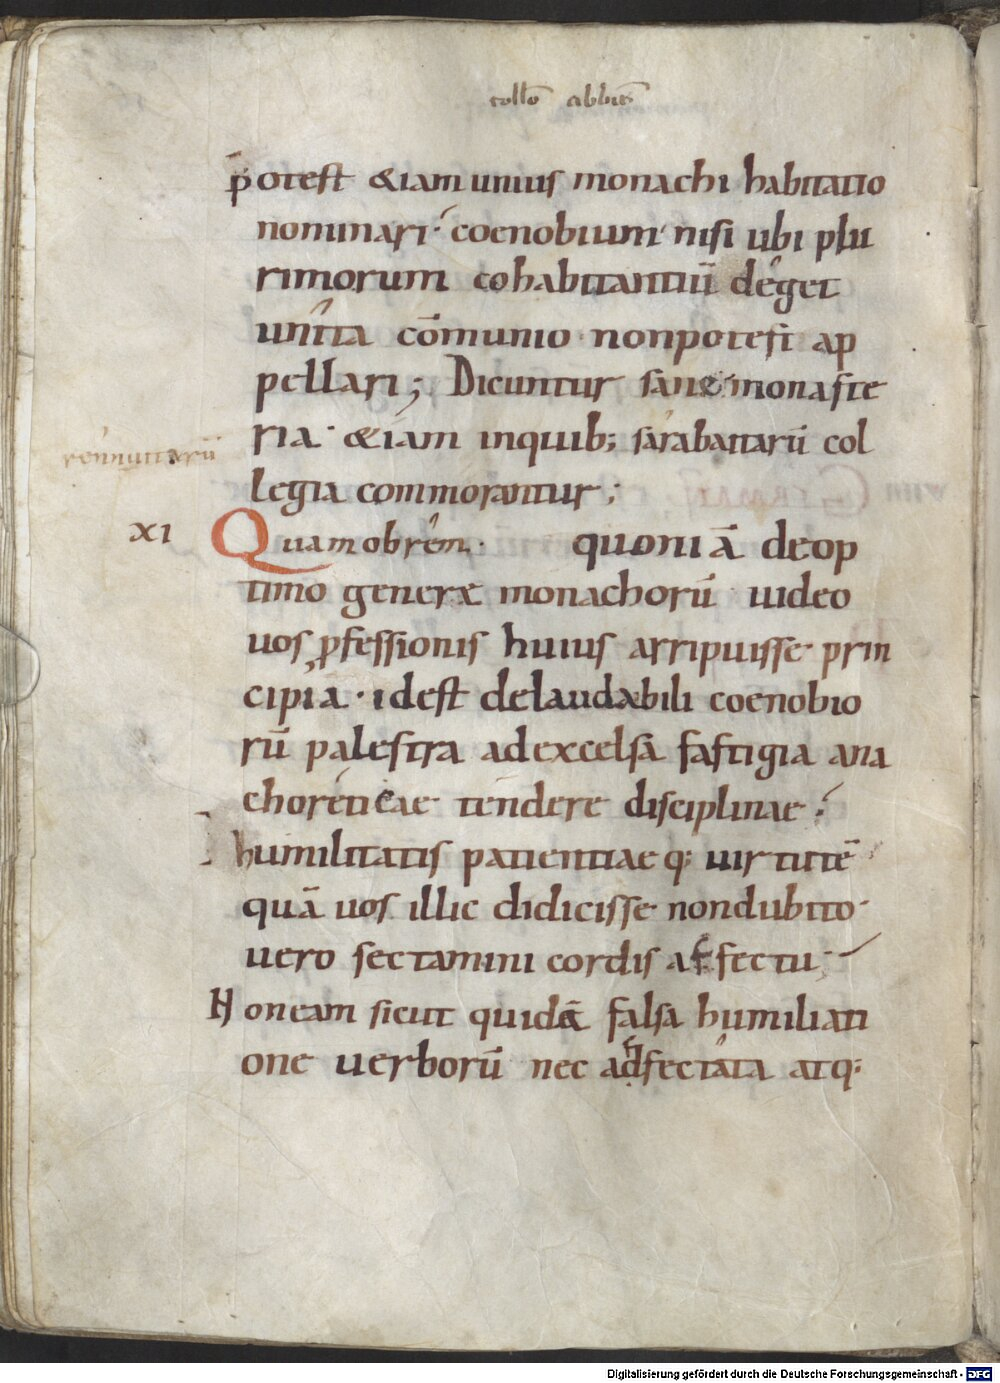 collō abbīs
p̄otest &iam unius monachi habitatio
nominari· coenobium nisi ubi plu
rimorum cohabitantiū deget
unita cōmunio non potest ap
pellari; Dicuntur sane monaste
ria· &iam in quib; sarabaitarū col
legia commorantur;
XI Quamobrem· quoniā de op
timo genere monachorū uideo
uos ꝓfessionis huius arripuisse prin
cipia· id est de laudabili coenobio
rū palestra ad excelsa fastigia ana
choreticae tendere disciplinae·
humilitatis patientiaeq: uirtutē
quā uos illic didicisse non dubito·
uero sectamini cordis affectu;
Non eam sicut quidā falsa humiliati
one uerborū nec adfectata atq:
Digitalisierung gefördert durch die Deutsche Forschungsgemeinschaft - DFG